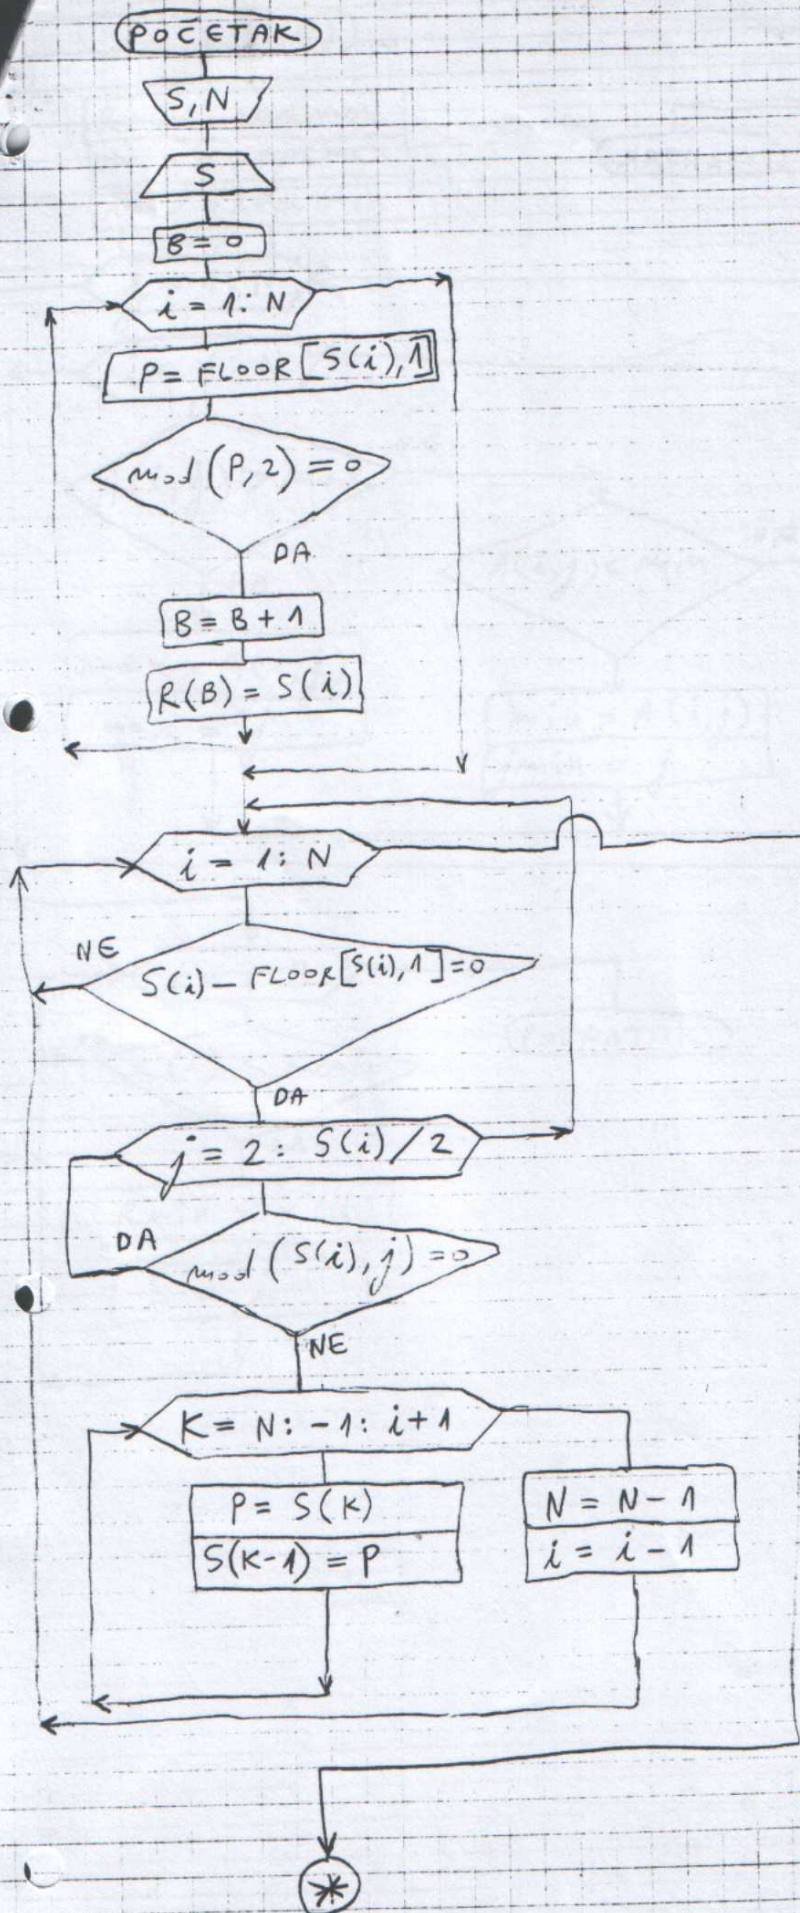 POČETAK
S, N
S
B = 0
i = 1: N
P = FLOOR [S(i), 1]
mod (P, 2) = 0
DA
B = B + 1
R(B) = S(i)
i = 1: N
NE
S(i) - FLOOR [S(i), 1] = 0
DA
j = 2: S(i) / 2
DA
mod (S(i), j) = 0
NE
K = N: -1: i+1
P = S(K)
S(K-1) = P
N = N - 1
i = i - 1
*